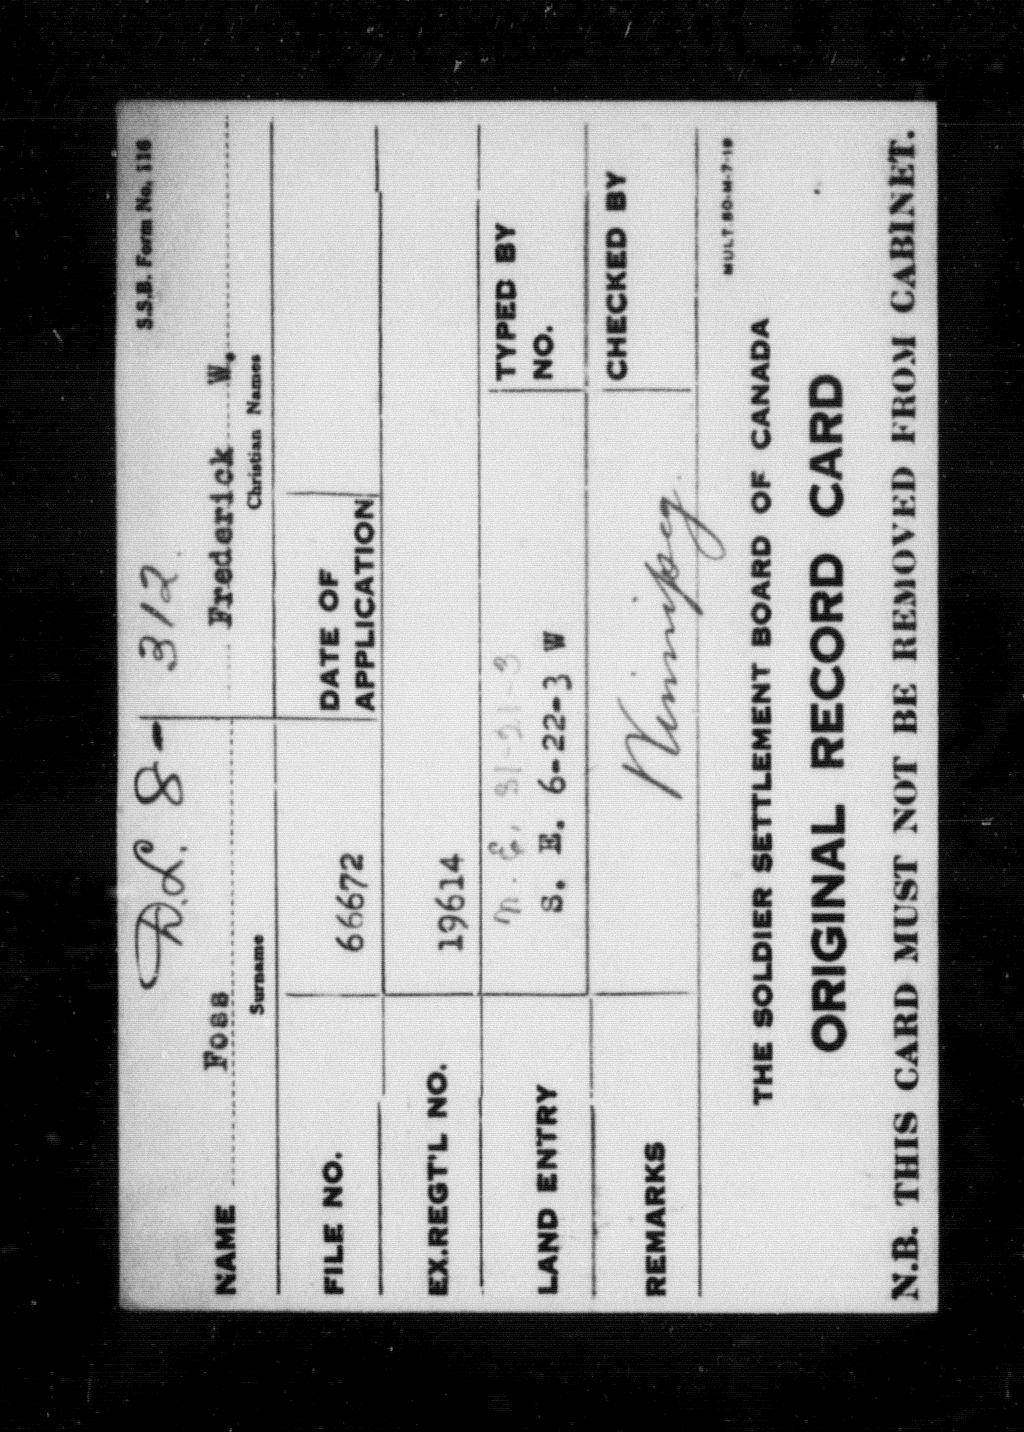 D.L. 8- 312.
S.S.B. Form No. 116
NAME Foss Frederick W.
Surname Christian Names
FILE NO. 66672 DATE OF APPLICATION
EX.REGT'L NO. 19614
n. E. 31-21-3
LAND ENTRY S. E. 6-22-3 W
TYPED BY
NO.
REMARKS Winnipeg.
CHECKED BY
MULT 50-M-7-19
THE SOLDIER SETTLEMENT BOARD OF CANADA
ORIGINAL RECORD CARD
N.B. THIS CARD MUST NOT BE REMOVED FROM CABINET.